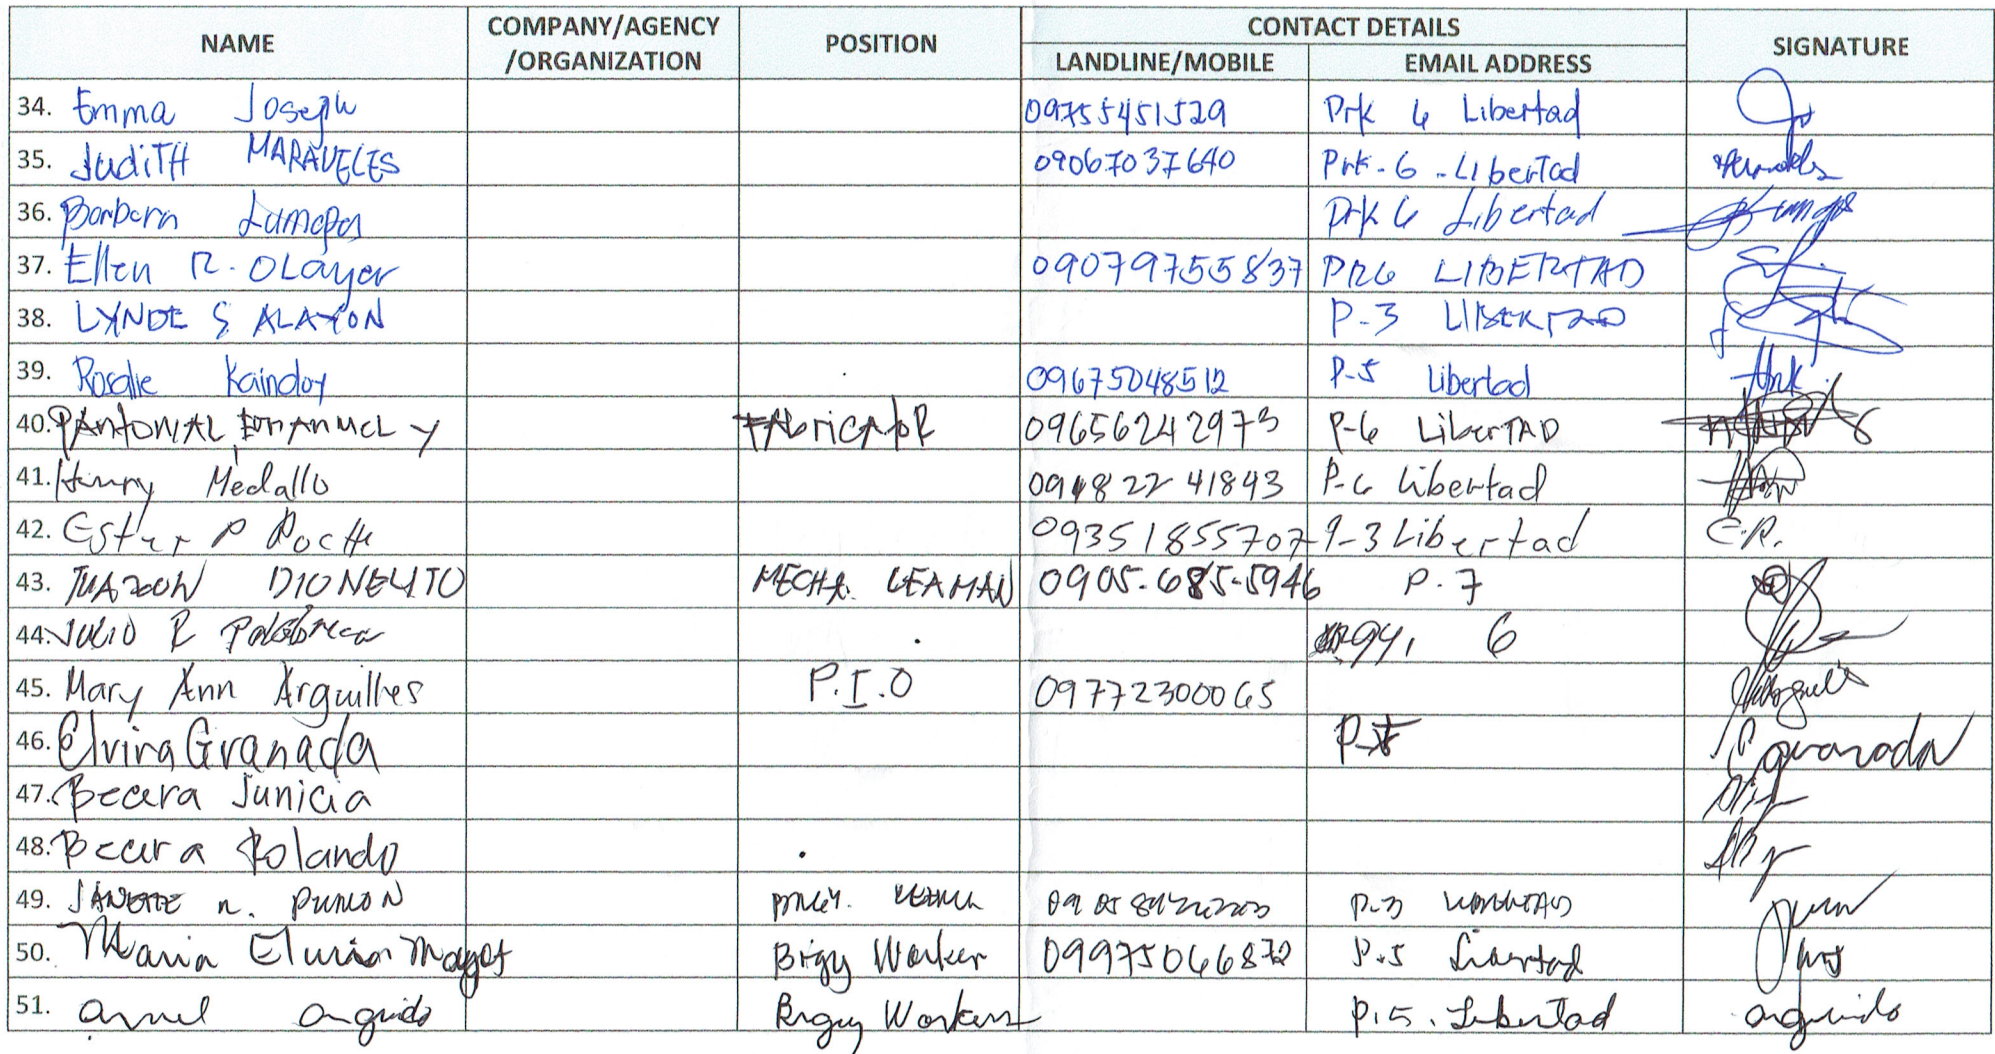 NAME COMPANY/AGENCY /ORGANIZATION POSITION CONTACT DETAILS SIGNATURE
LANDLINE/MOBILE EMAIL ADDRESS
34. Emma Joseph 09755451529 Prk 6 Libertad
35. JudiTH MARAVELES 09067037640 Prk-6-LibertTad
36. Barbara Lumapas Prk 6 Libertad
37. Ellen R. OLayer 09079755837 PR6 LIBERTAD
38. LYNDE S ALAYON P-3 LIBERTAD
39. Rosalie Kaindoy 09675048512 P-5 Libertad
40. PANTONIAL EMANUEL Y FAbricAtoR 09656242973 P-6 LiberTAD
41. Henry Medallo 09182241843 P-6 Libertad
42. Ester P 09351855707 P-3 Libertad E.P.
43. TUAZON DIONELITO MECHA. LEAMAN 0905-685-5946 P.7
44. JULIO R 6
45. Mary Ann Arguilles P.I.O 09772300065
46. Elvira Granada granada
47. Becera Junicia
48. Becera Rolando
49. JANETTE n. P-3
50. Maria Brgy Worker 09975066872 P.5 Libertad
51. arguido Brgy Workers P.5. LibertTad arguido